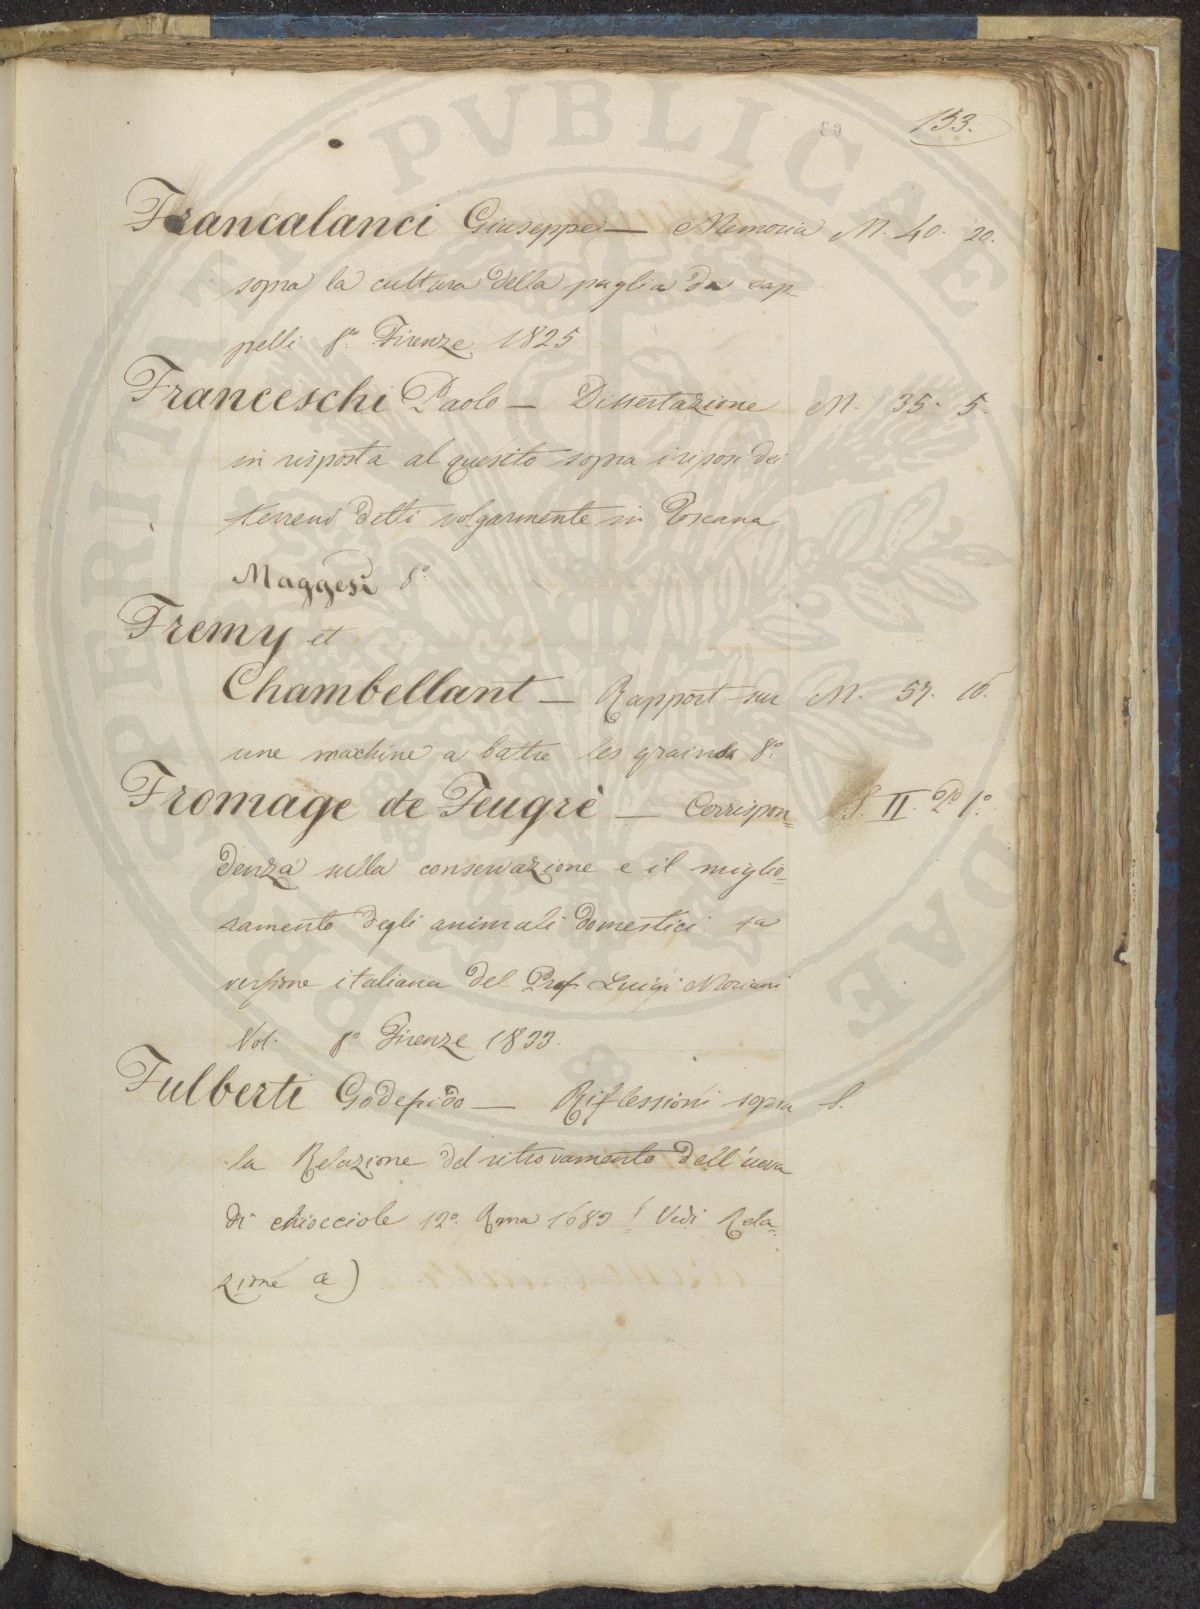 153.
Francalanci Giuseppe — Memoria M. 40. 20.
sopra la cultura della paglia da cap
pelli 8° Firenze 1825
Franceschi Paolo — Dissertazione M. 35. 5.
in risposta al quesito sopra i riposi dei
terreni detti volgarmente in Toscana
Maggesi 8°
Fremy et
Chambellant — Rapport sur M. 57. 16.
une machine a battre les grains 8°
Fromage de Feugrè — Corrispon= S. II. 1°
denza sulla conservazione e il miglio=
ramento degli animali domestici
versione italiana del Prof Luigi Moriani
Vol. 8° Firenze 1833.
Fulberti Godefrido — Riflessioni sopra S.
la Relazione del ritrovamento dell'uova
di chiocciole 12° Roma 1683 ( Vedi Rela=
zione &)
PROSPERITATI PVBLICAE AVGENDAE